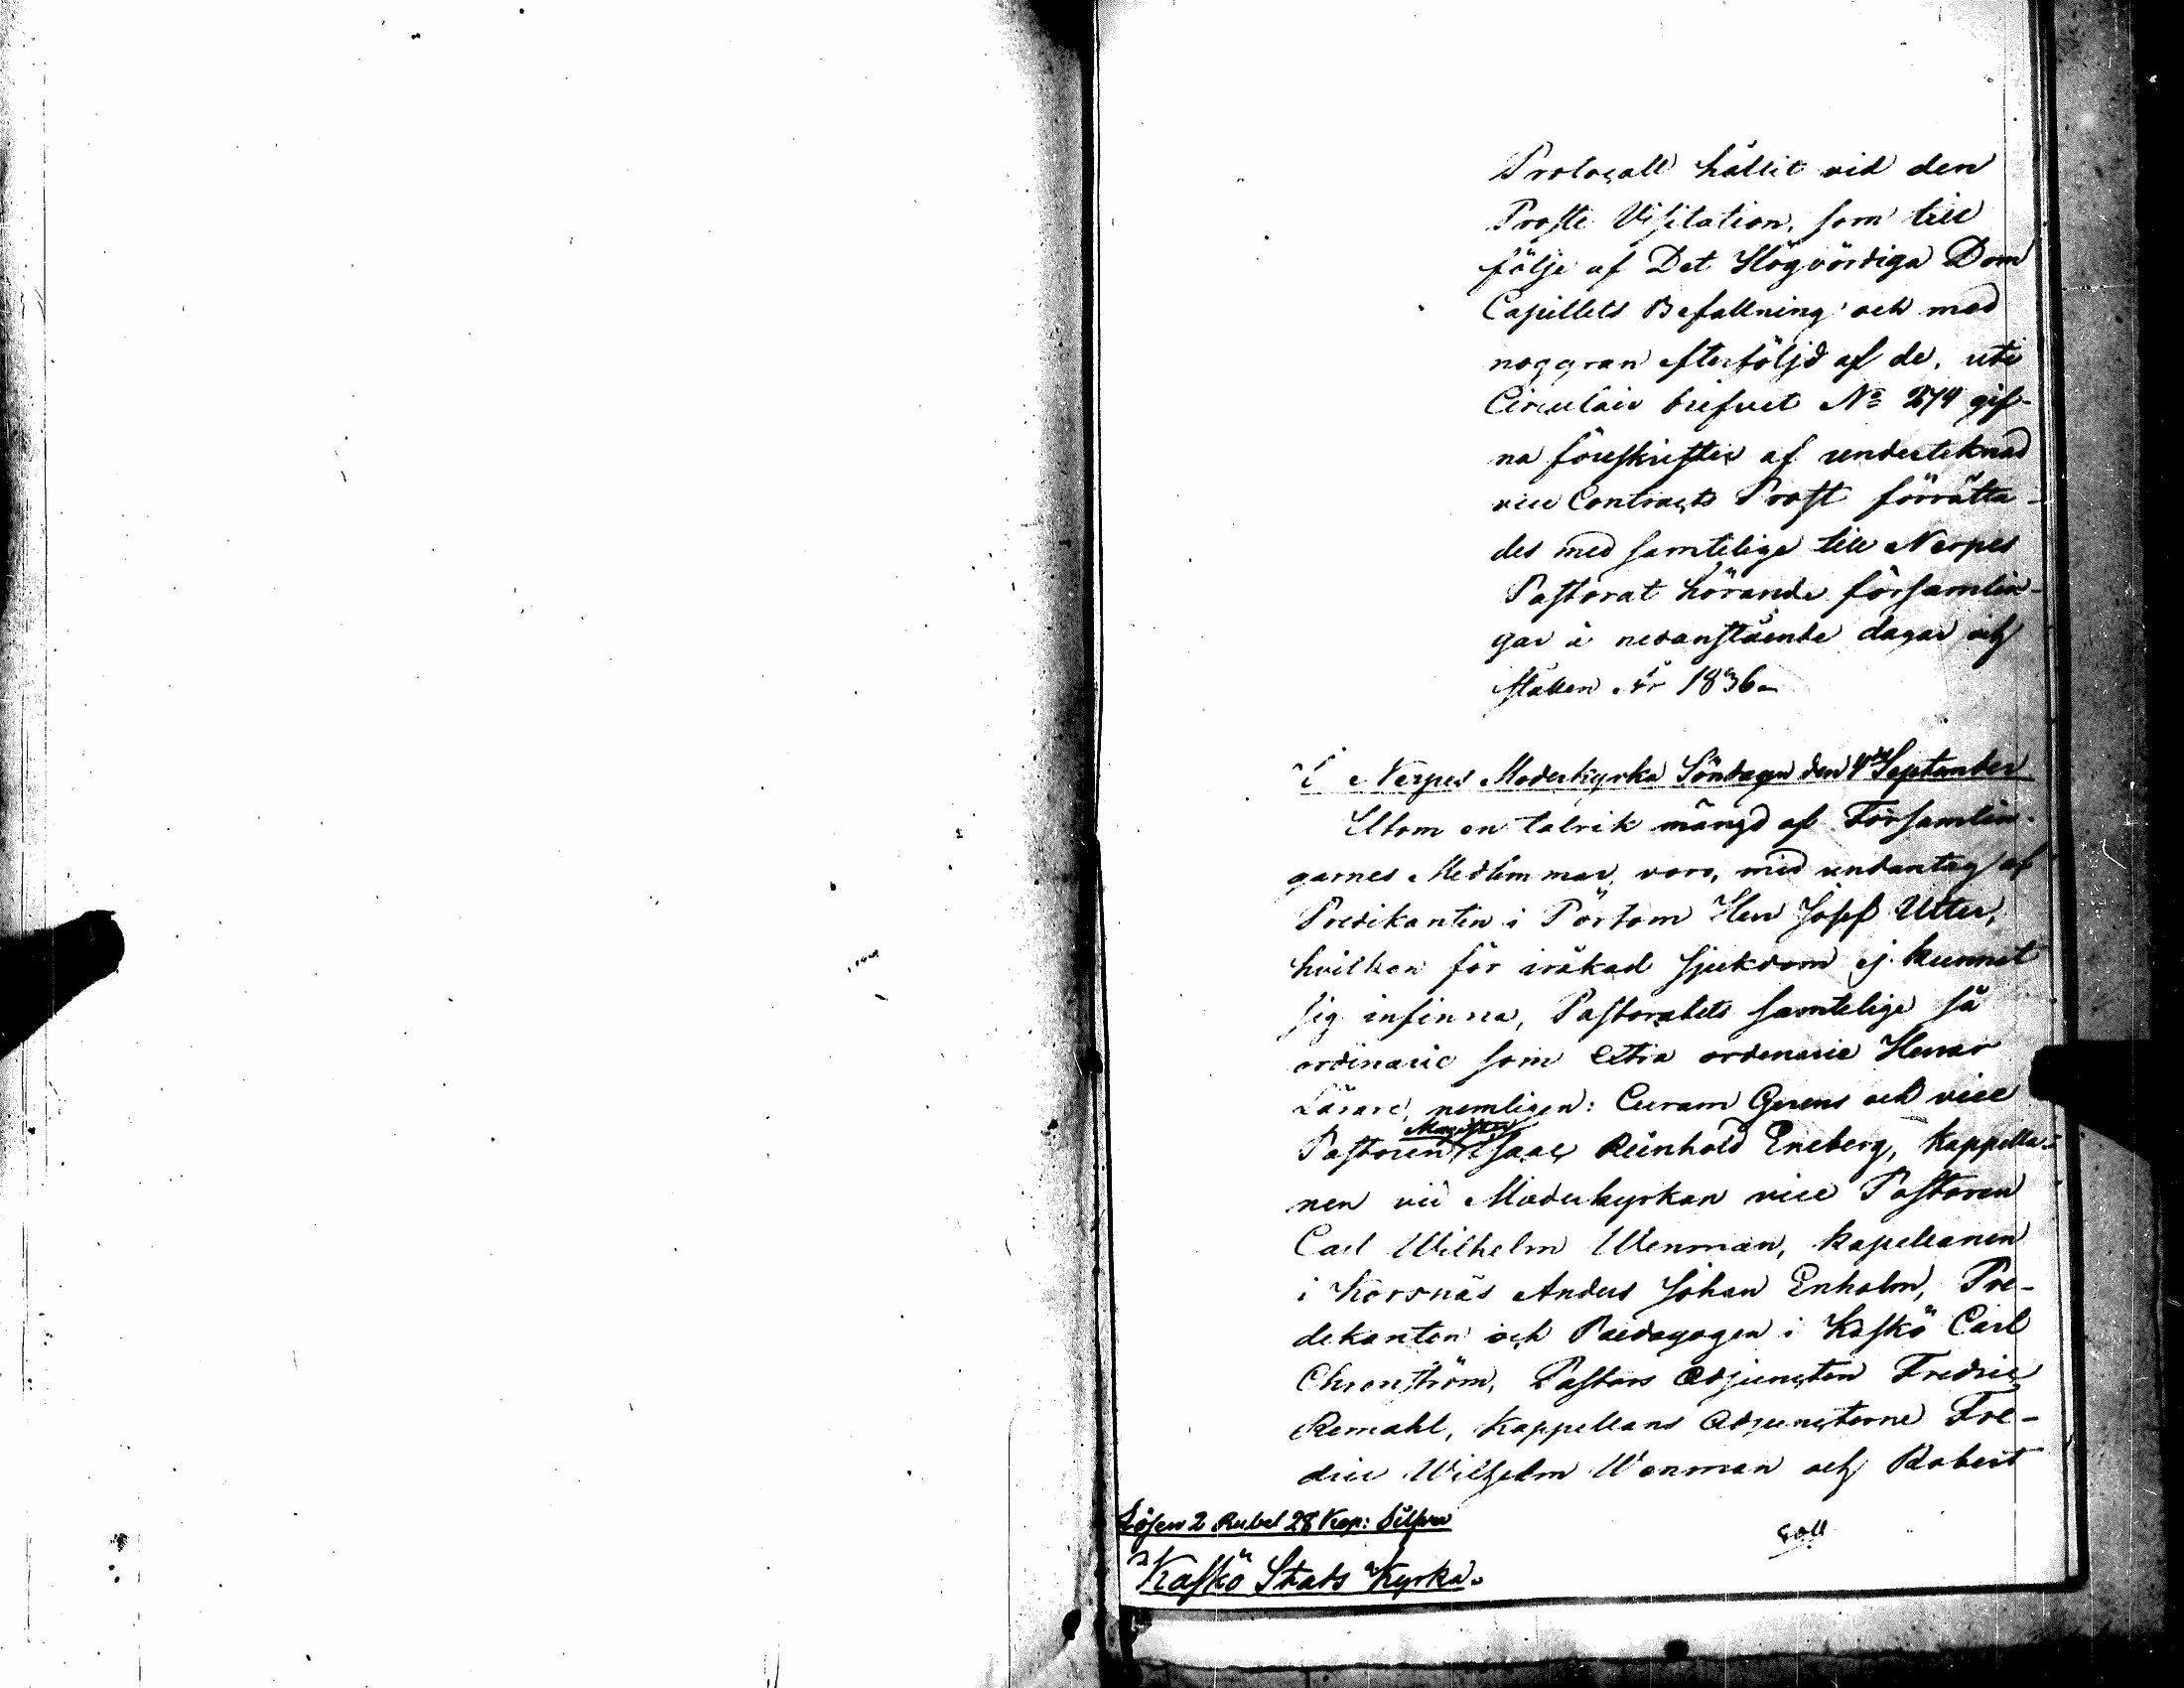 Protocoll hållit vid den
Proste Visitation, som till
följe af Det Högvördiga Dom
Capitlets Befallning och med
noggran efterföljd af de, uti
Circulair brefvet No 274 gif-
na föreskrifter af underteknad
vice Contracts Prost förrätta-
des med samtelige till Nerpes
Pastorat hörande församlin-
gar å nedanstående dagar och
ställen År 1836
I Nerpes Moderkyrka Söndagen den 4de September
Utom en talrik mängd af Församlin-
garnes Medlemmar, voro, med undantag af
Predikanten i Pörtom Herr Josef Utter,
hvilken för iråkad sjukdom ej kunnat
sig infinna, Pastoratets samtelige så
ordinarie som extra ordinarie Herrar
Lärare, nemligen: Curam Gerens och vice
Magister
Pastoren Isaac Reinhold Eneberg, Kappella-
nen vid Moderkyrkan vice Pastoren
Carl Wilhelm Wenman, kapellanen
i Korsnäs Anders Johan Enholm, Pre-
dekanten och Paedagogen i Kaskö Carl
Chronström, Pastors Adjuncten Fredric
Remahl, Kappellans Adjuncterne Fre-
dric Wilhelm Wenman och Robert
Lösen 2 Rubel 28 Kop: Silfver
Coll
Kaskö Stads Kyrka.